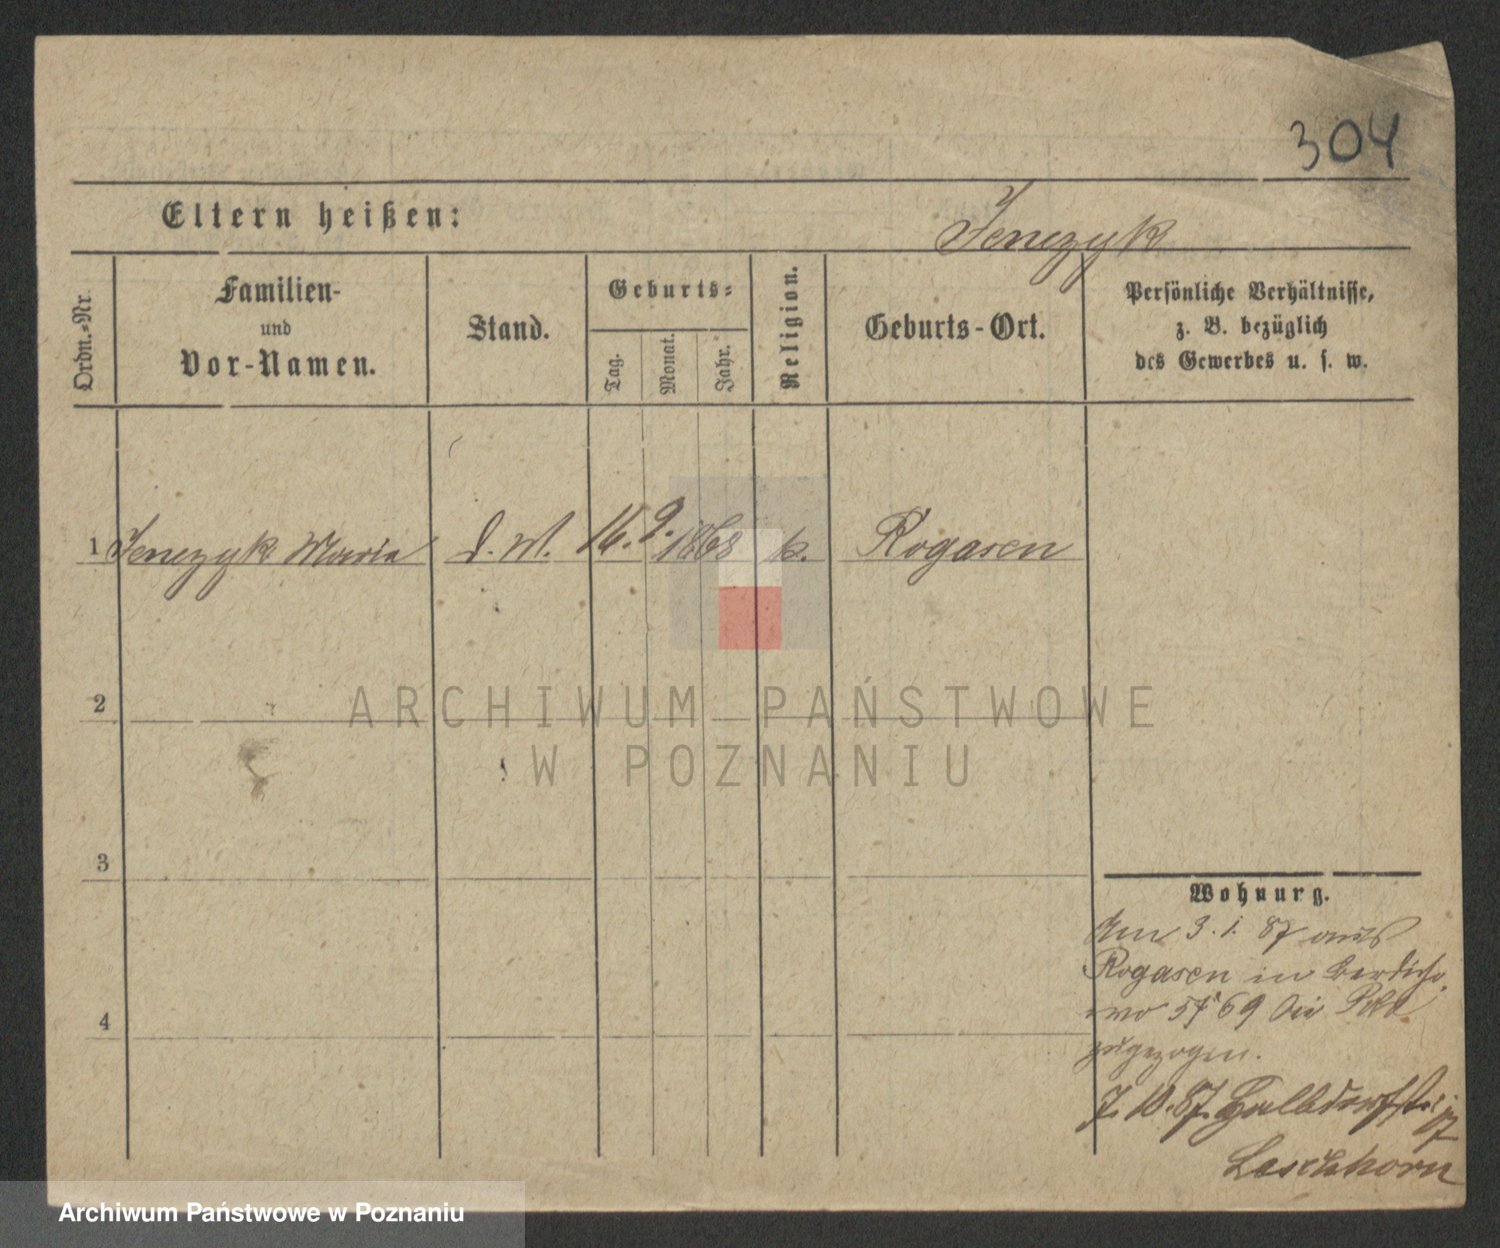 304
Eltern heißen:
Jenczyk
Ordn.=Nr.
Familien-
und
Vor-Namen.
Stand.
Geburts=
Tag.
Monat.
Jahr.
Religion.
Geburts-Ort.
Persönliche Verhältnisse,
z. B. bezüglich
des Gewerbes u. s. w.
1 Jenczyk Maria d. M. 16. 9. 1868 k. Rogasen
2
3
4
Wohnung.
Am 3.1.87 aus
Rogasen in Berdycho-
wo 57/69 bei
zugezogen.
7.10.87. Halbdorfstr. 17
ARCHIWUM PAŃSTWOWE
W POZNANIU
Archiwum Państwowe w Poznaniu